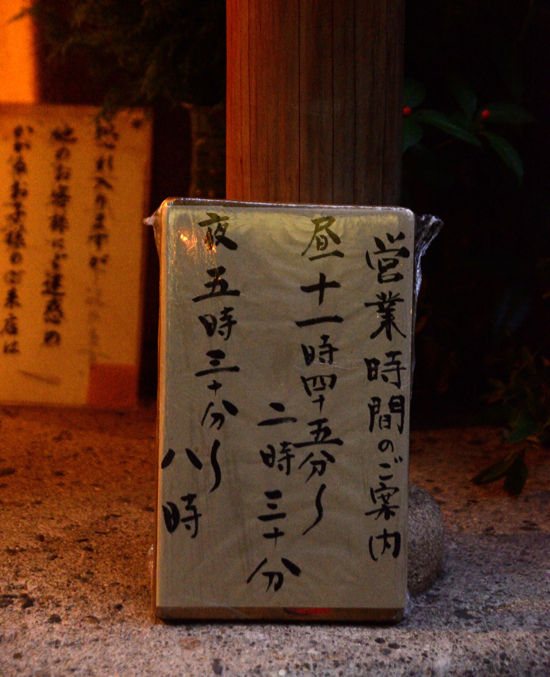 営業時間のご案内
昼 十一時四十五分〜
二時三十分
夜 五時三十分〜
八時
恐れ入りますが
他のお客様にご迷惑の
かかるお子様のご来店は